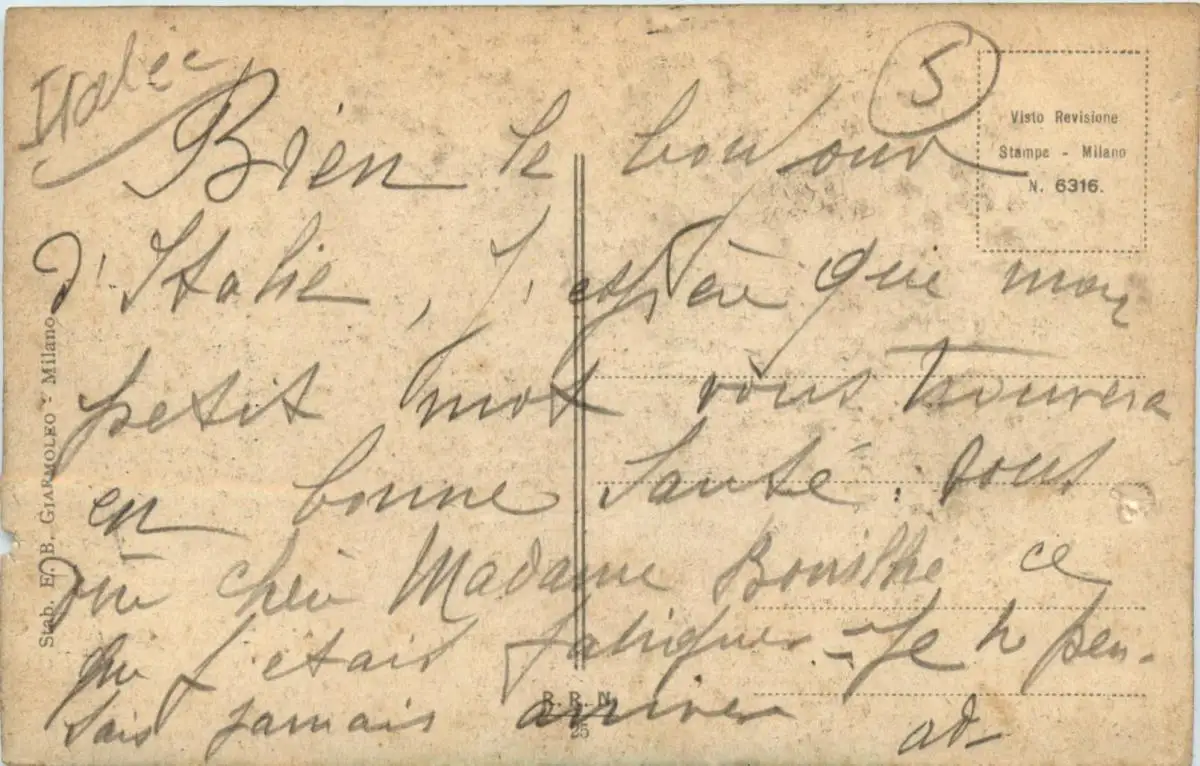 Italie
5
Visto Revisione
Stampa - Milano
N. 6316.
Bien le bonjour
d'Italie, j'espère que mon
petit mot vous trouvera
en bonne Santé.
cher Madame ce
que j'etais fatiguer - Je n pen-
sais jamais arriver
ad-
Stab. E. B. GIARMOLEO - Milano
R. R. N.
25